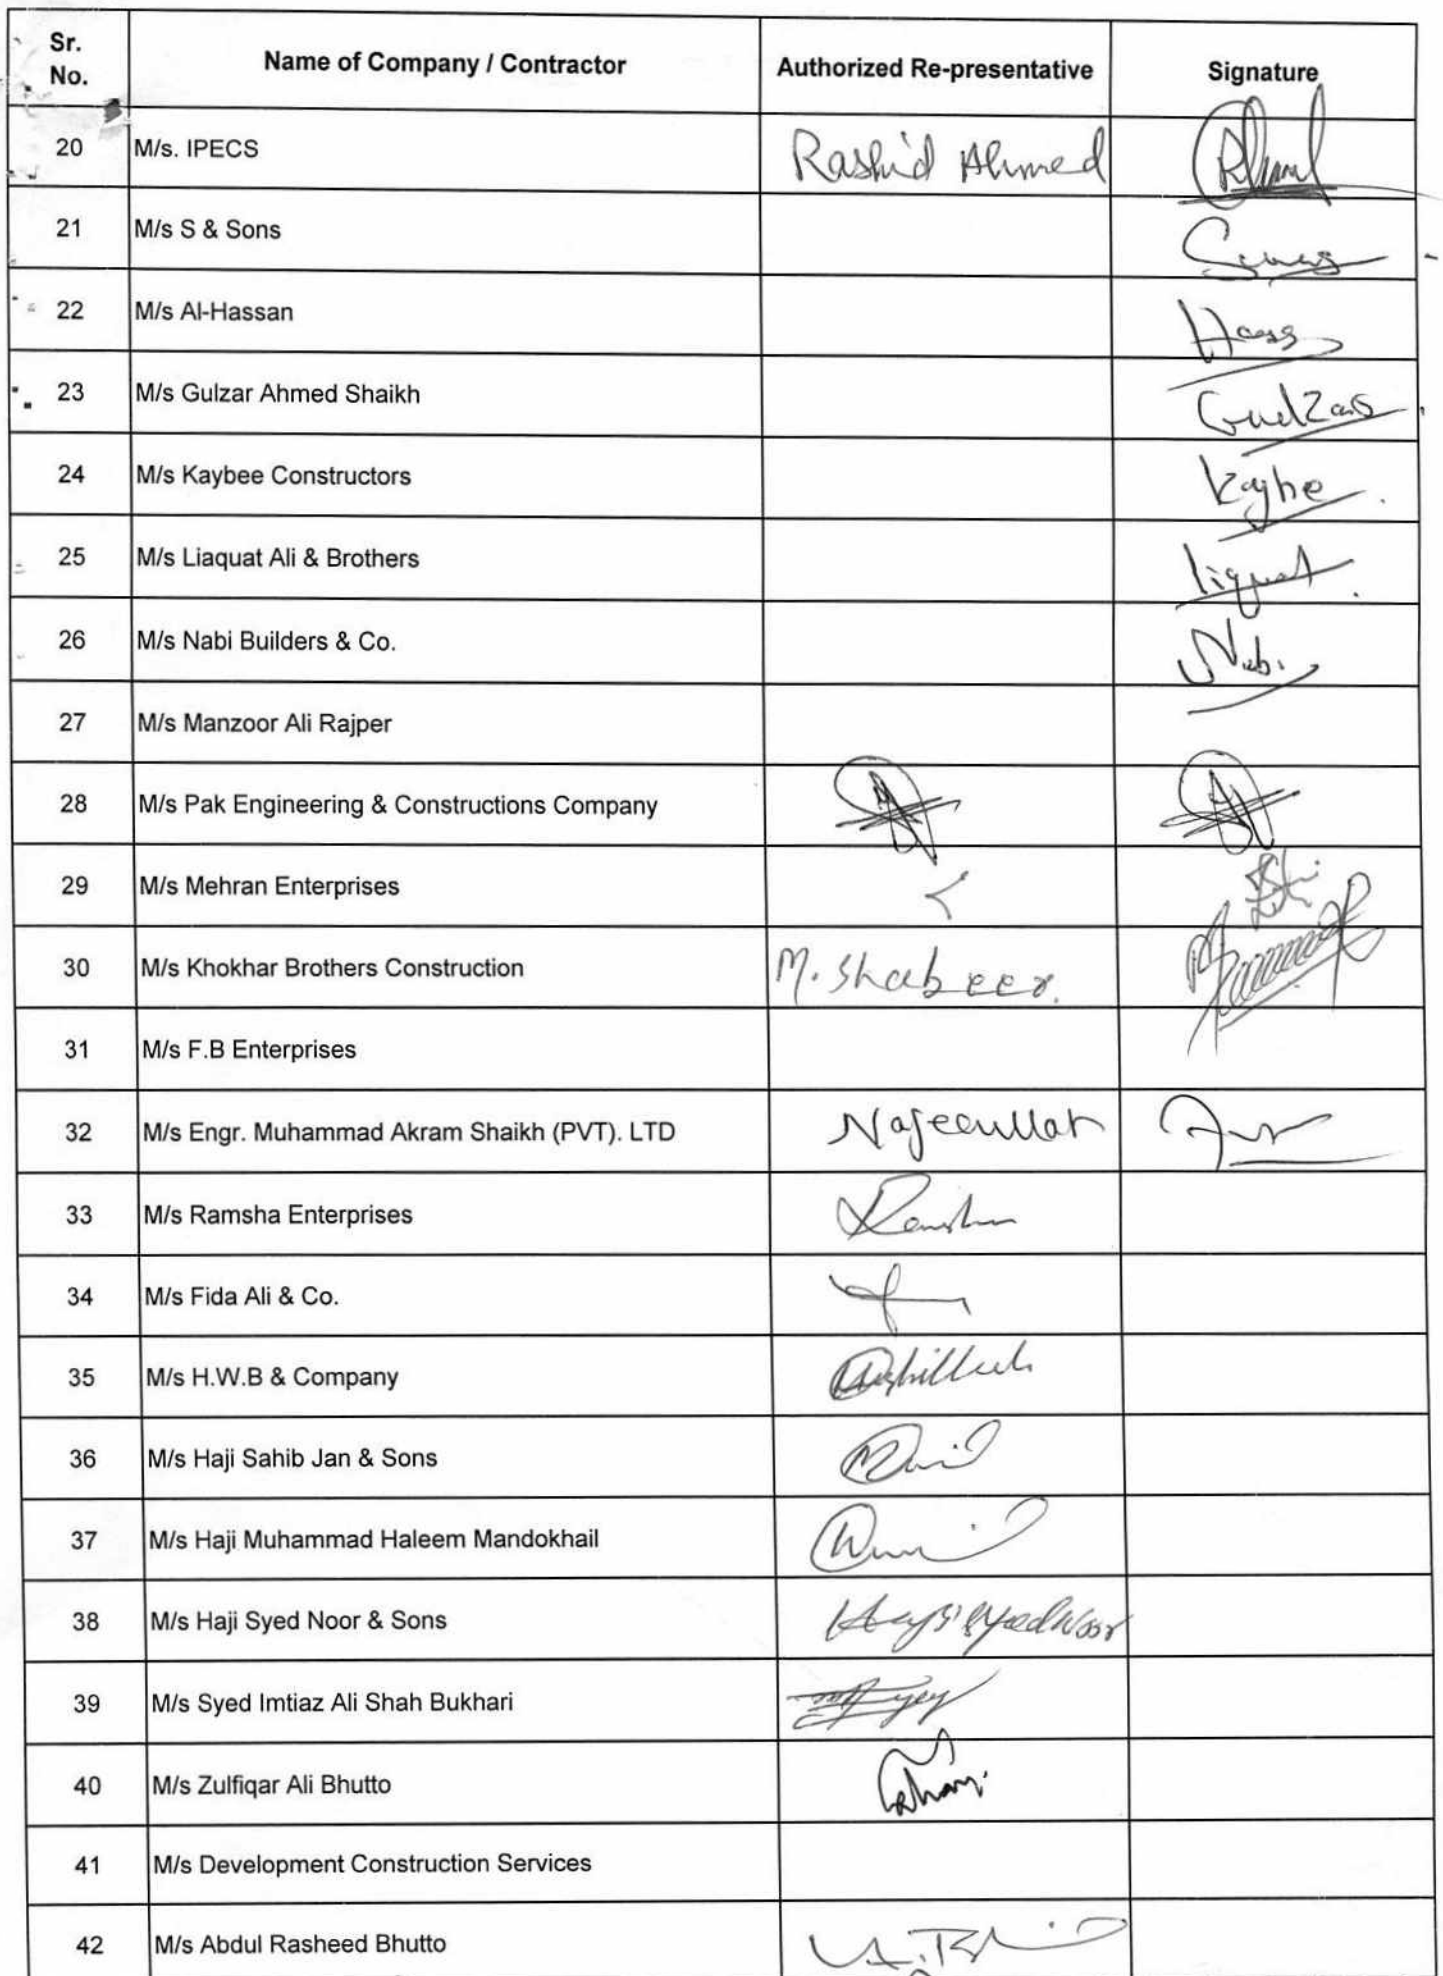 Sr. No. Name of Company / Contractor Authorized Re-presentative Signature
20 M/s. IPECS Rashid Ahmed
21 M/s S & Sons
22 M/s Al-Hassan
23 M/s Gulzar Ahmed Shaikh
24 M/s Kaybee Constructors
25 M/s Liaquat Ali & Brothers
26 M/s Nabi Builders & Co. Nabi
27 M/s Manzoor Ali Rajper
28 M/s Pak Engineering & Constructions Company
29 M/s Mehran Enterprises
30 M/s Khokhar Brothers Construction M. Shabeer.
31 M/s F.B Enterprises
32 M/s Engr. Muhammad Akram Shaikh (PVT). LTD
33 M/s Ramsha Enterprises
34 M/s Fida Ali & Co.
35 M/s H.W.B & Company
36 M/s Haji Sahib Jan & Sons
37 M/s Haji Muhammad Haleem Mandokhail
38 M/s Haji Syed Noor & Sons Haji Syed Noor
39 M/s Syed Imtiaz Ali Shah Bukhari
40 M/s Zulfiqar Ali Bhutto
41 M/s Development Construction Services
42 M/s Abdul Rasheed Bhutto